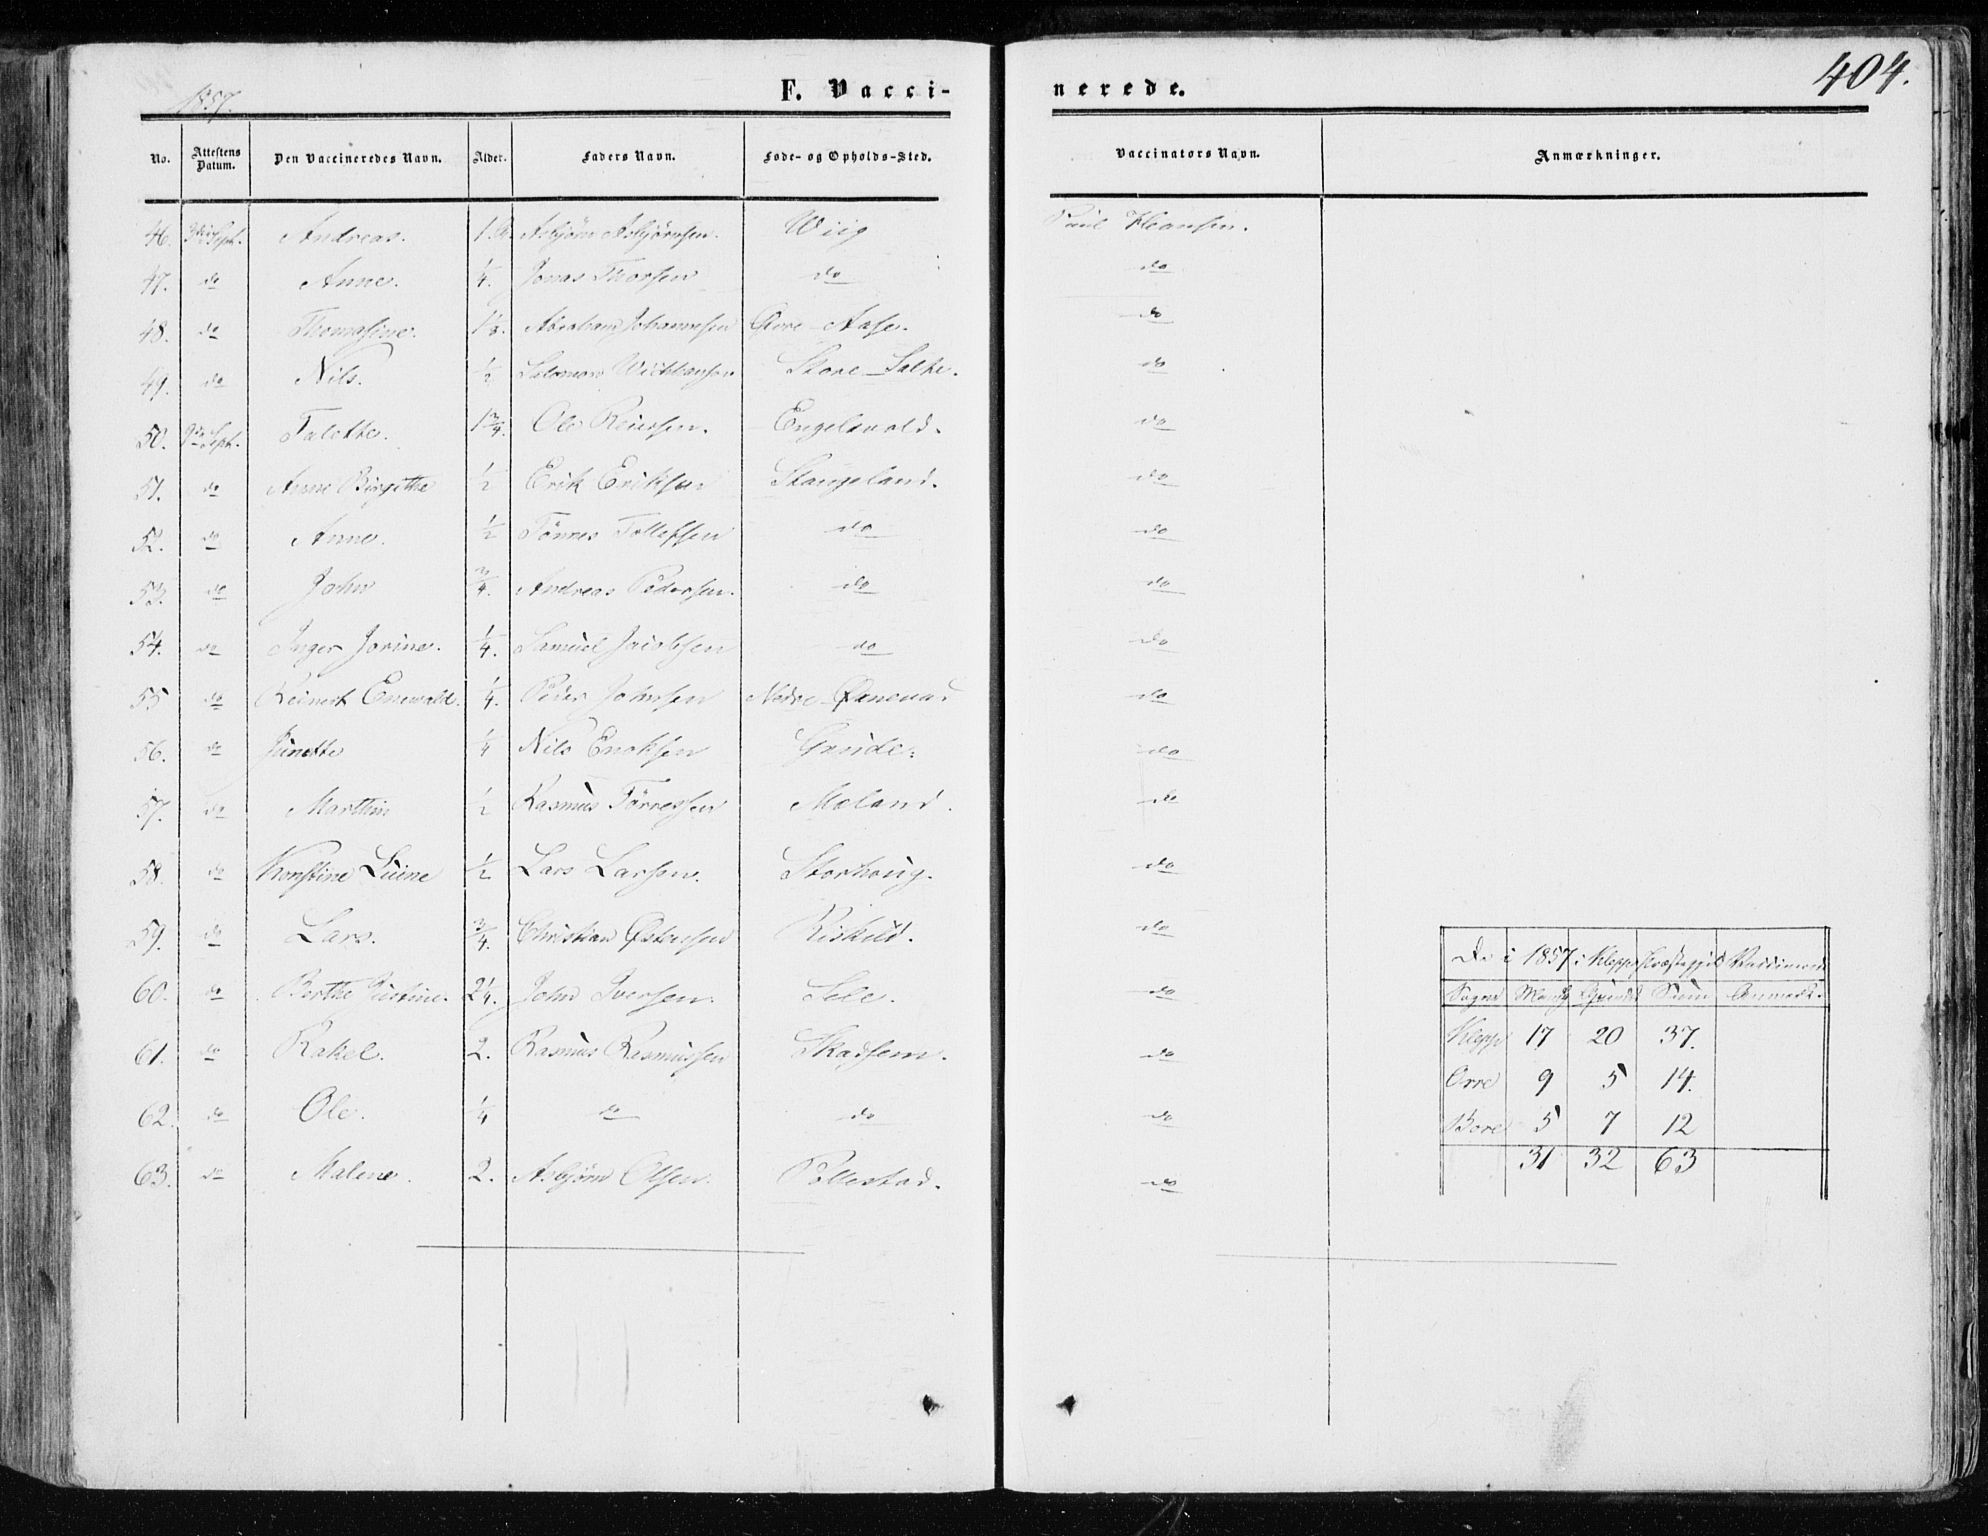 404.
1857.
F. Vacci-nerede.
No. Attestens Datum. Den Vaccineredes Navn. Alder. Faders Navn. Føde- og Opholds-Sted. Vaccinators Navn. Anmærkninger.
46. 3die Sept. Andreas. Asbjörn Asbjörnsen. Wiig Paul Hansen.
47. do Anne. 1/4. Jonas Thorsen do do
48. do Thomasine. Abraham Johannesen Øvre-Aase. do
49. do Nils. 1/2 Salomon Store-Salte. do
50. 9de Sept. Talette. 1 3/4. Ole Reiersen. Engelsvold. do
51. do Anne Birgithe 1/2 Erik Eriksen Stangeland. do
52. do Anne. 1/2 Tönnes Tollefsen do do
53. do John 3/4. Andreas Pedersen. do do
54. do Inger Jorine. 1/4. Samuel Jacobsen do do
55 do Reinert Enevald. 1/4. Peder Johnsen Nedre-Øxnevad do
56. do Junette 1/4 Nils Enoksen Grude. do
57. do Marthin 1/2 Rasmus Törresen Moland. do
58. do Konstine Luine 1/2 Lars Larsen. Storhoug. do
59. do Lars. 3/4. Christian Østensen Riskild. do
60. do Berthe Justine. 2 1/4. John Iversen. Sele. do
61. do Rakel. 2. Rasmus Rasmussen Skadsem. do
62. do Ole. 1/4 do do do
63. do Malene. 2. Asbjörn Olsen. Pollestad. do
De i 1857 i Klepps Præstegjeld Vaccinerede
Sogne Mandk Qvindk Sum Anmærk.
Klepp 17 20 37.
Orre 9 5 14.
Bore 5 7 12
31 32 63